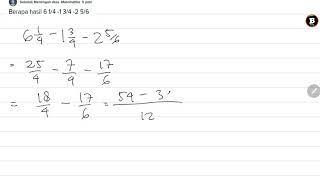 Sekolah Menengah Atas Matematika 5 poin
Berapa hasil 6 1/4 -1 3/4 -2 5/6
B
6 1/4 - 1 3/4 - 2 5/6
= 25/4 - 7/4 - 17/6
= 18/4 - 17/6 = 54 - 3
12